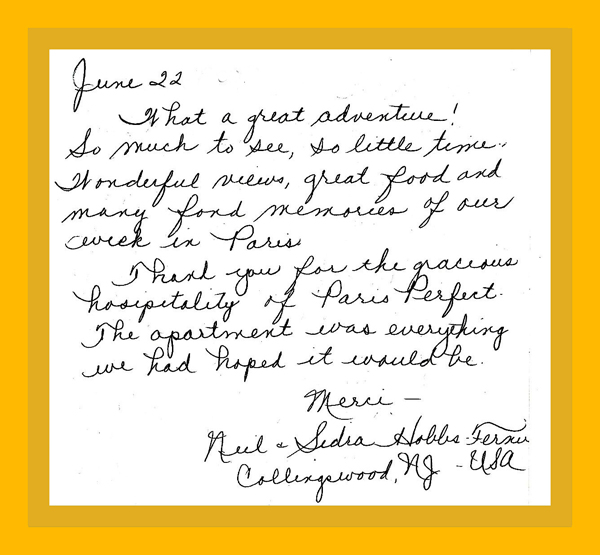 June 22
What a great adventure!
So much to see, so little time.
Wonderful views, great food and
many fond memories of our
week in Paris.
Thank you for the gracious
hospitality of Paris Perfect.
The apartment was everything
we had hoped it would be.
Merci —
Neil & Sedra Hobbs-Fernie
Collingswood, NJ - USA